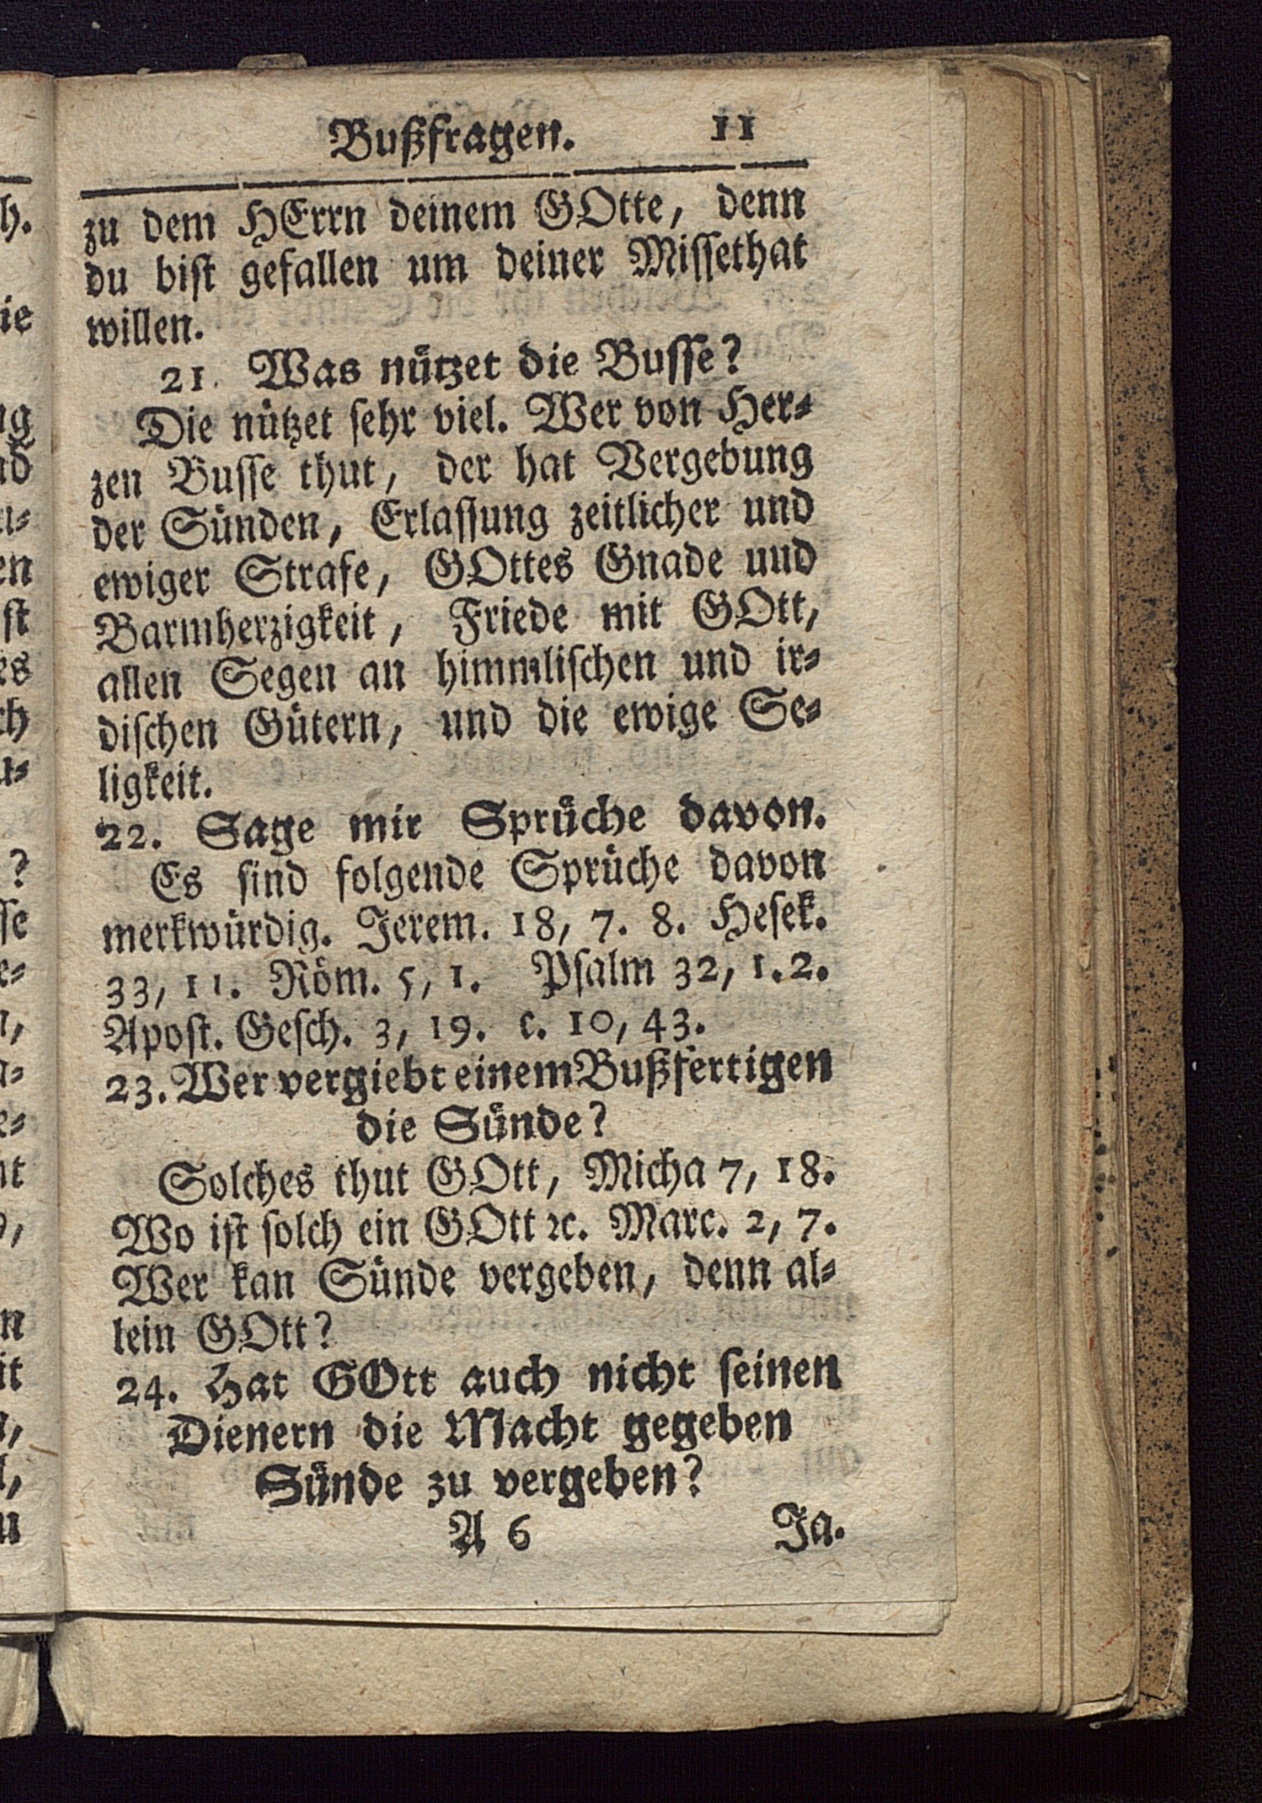 Bußfragen. 11
zu dem HErrn deinem GOtte, denn
du bist gefallen um deiner Missethat
willen.
21. Was nützet die Busse?
Die nützet sehr viel. Wer von Her-
zen Busse thut, der hat Vergebung
der Sünden, Erlassung zeitlicher und
ewiger Strafe, GOttes Gnade und
Barmherzigkeit, Friede mit GOtt,
allen Segen an himmlischen und ir-
dischen Gütern, und die ewige Se-
ligkeit.
22. Sage mir Sprüche davon.
Es sind folgende Sprüche davon
merkwürdig. Jerem. 18, 7. 8. Hesek.
33, 11. Röm. 5, 1. Psalm 32, 1. 2.
Apost. Gesch. 3, 19. c. 10, 43.
23. Wer vergiebt einem Bußfertigen
die Sünde?
Solches thut GOtt, Micha 7, 18.
Wo ist solch ein GOtt ꝛc. Marc. 2, 7.
Wer kan Sünde vergeben, denn al-
lein GOtt?
24. Hat GOtt auch nicht seinen
Dienern die Macht gegeben
Sünde zu vergeben?
A 6 Ja.